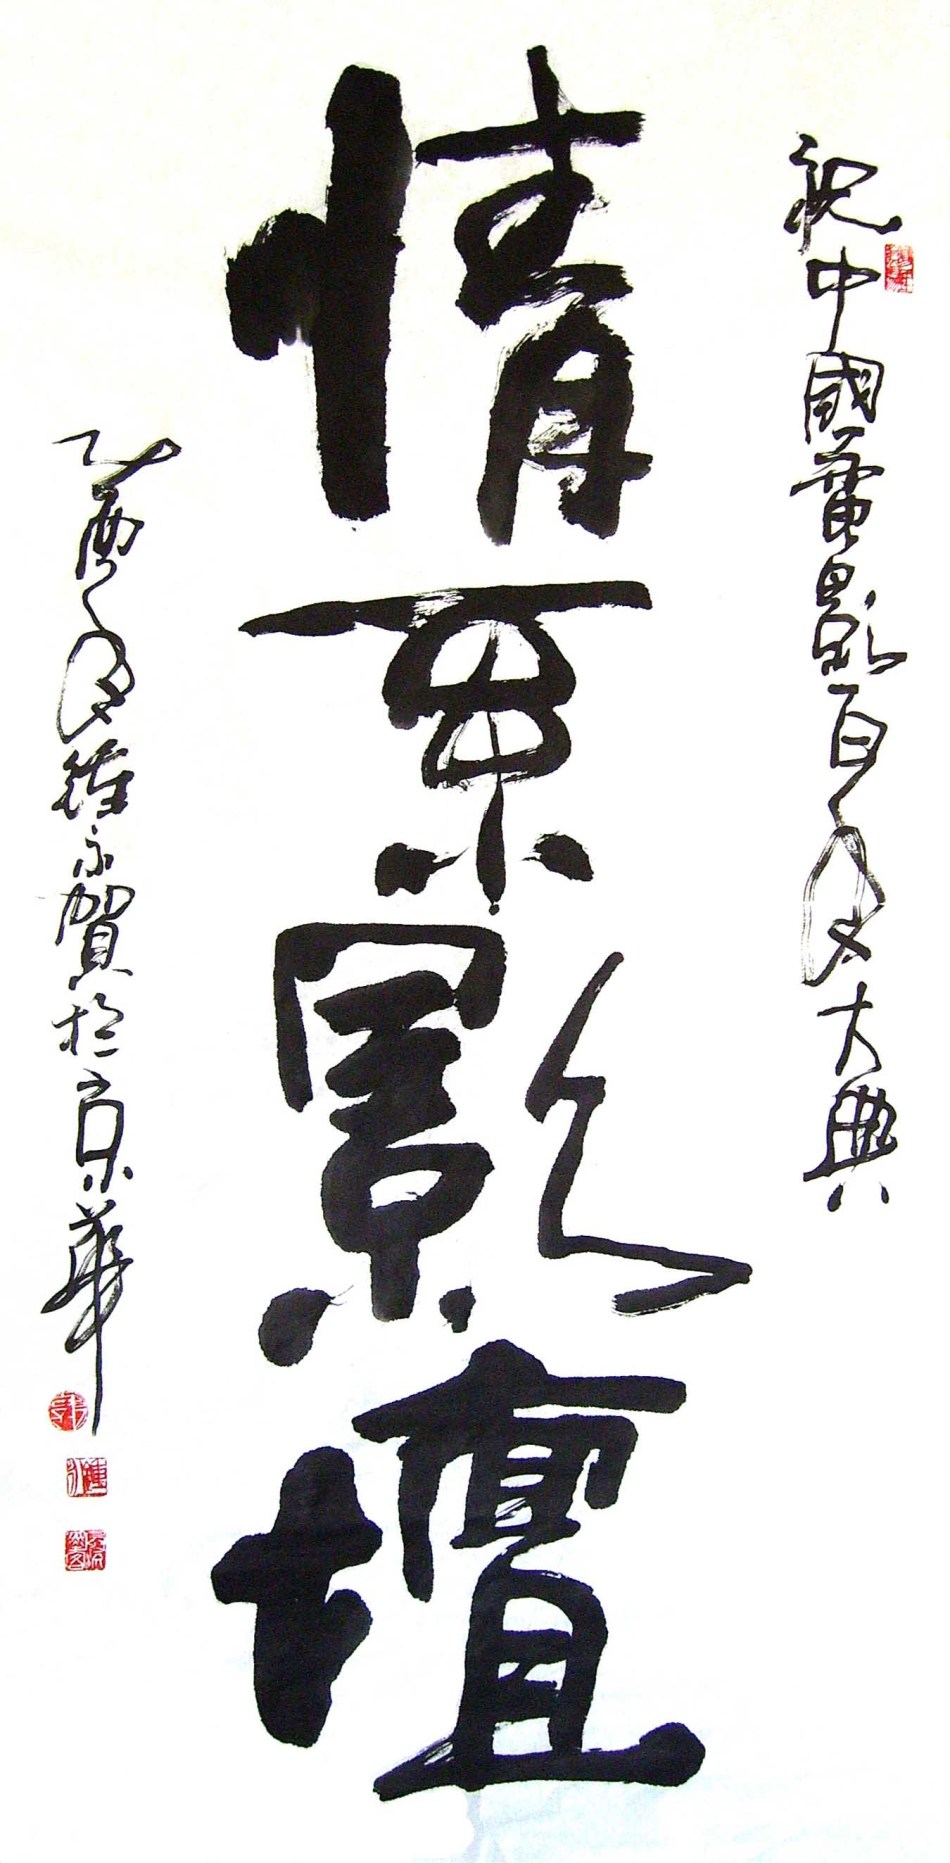 祝中國電影百年大典
情系影壇
乙酉年鍾永賀於京華